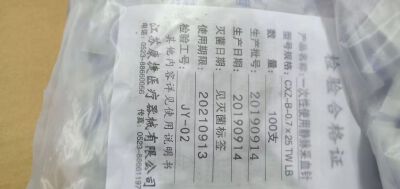 检验合格证
产品名称:一次性使用静脉采血针
型号规格:CXZ-B-0.7×25 TW LB
数 量:100支
生产批号:20190914
生产日期:20190914
灭菌日期:见灭菌标签
使用期限:20210913
检验工号:JY-02
其他内容详见使用说明书
江苏康捷医疗器械有限公司
电话:0523-8860056 传真:0523-88601197